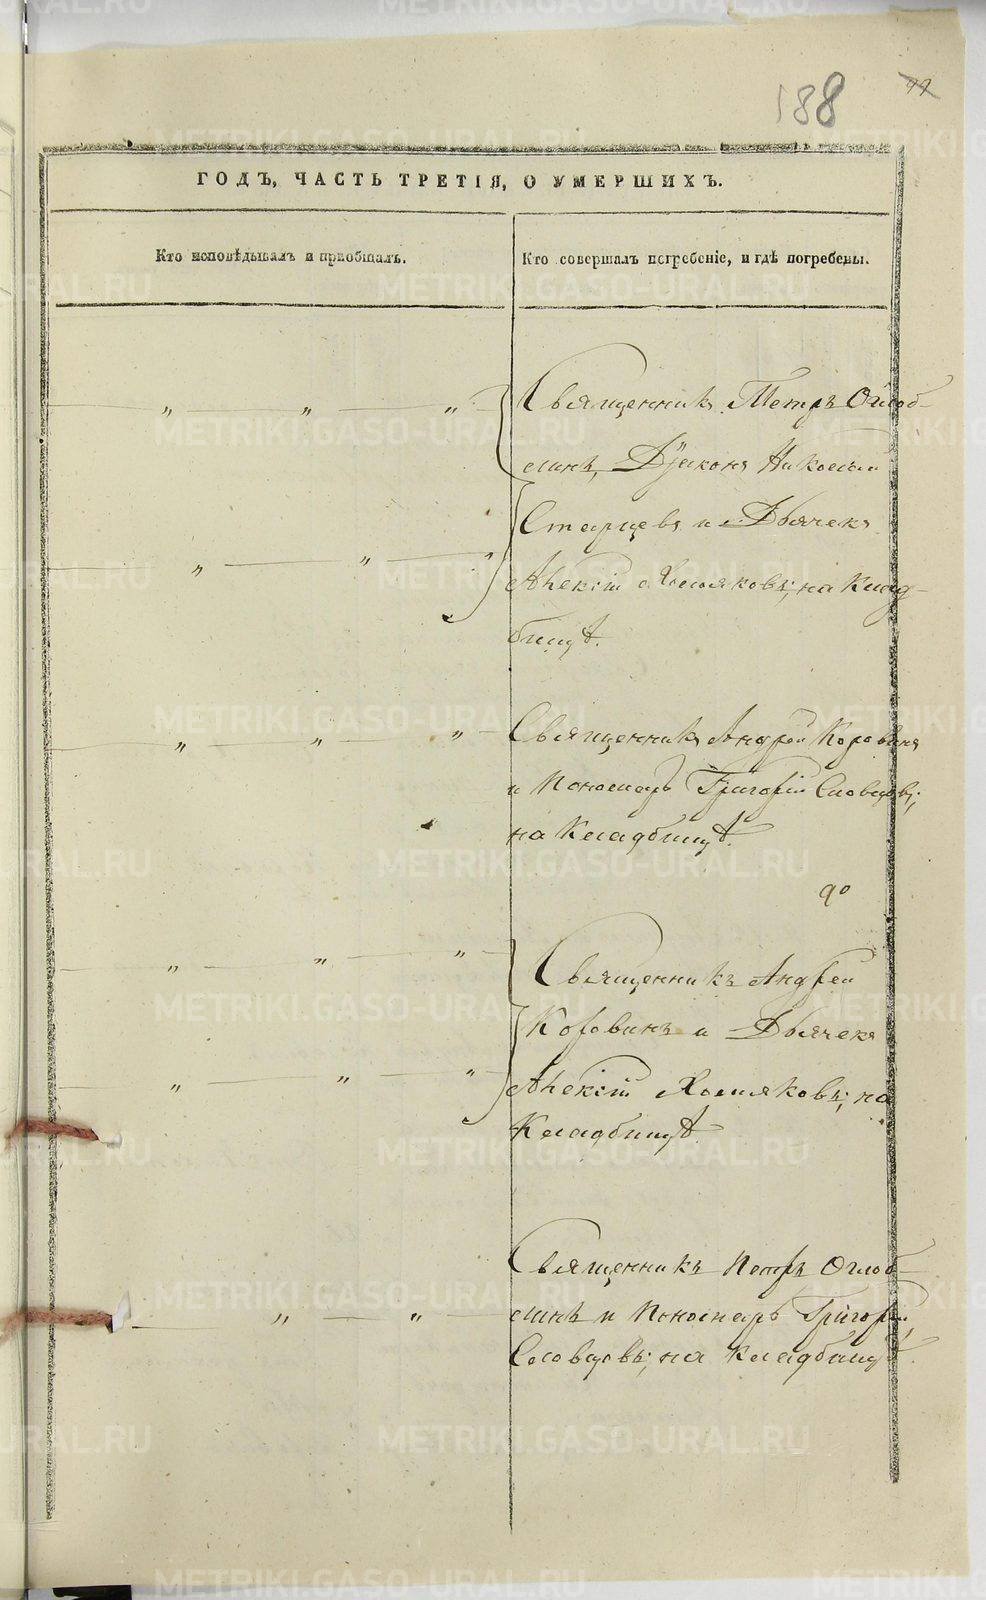 188
ГОДЪ, ЧАСТЬ ТРЕТІЯ, О УМЕРШИХЪ.
Кто исповѣдывалъ и пріобщалъ.
Кто совершалъ погребеніе, и гдѣ погребены.
Священникъ Петръ Оглоб-
линъ, Дїаконъ Николай
Старцевъ и Дьячекъ
Алексій Хомяковъ; на Клад-
бищѣ.
Священникъ Андрей Коровинъ
и Пономарь Григорій Словцовъ;
на Кладбищѣ.
Священникъ Андрей
Коровинъ и Дьячекъ
Алексій Хомяковъ; на
Кладбищѣ.
Священникъ Петръ Оглоб-
линъ и Пономарь Григорій
Словцовъ; на Кладбищѣ.
METRIKI.GASO-URAL.RU